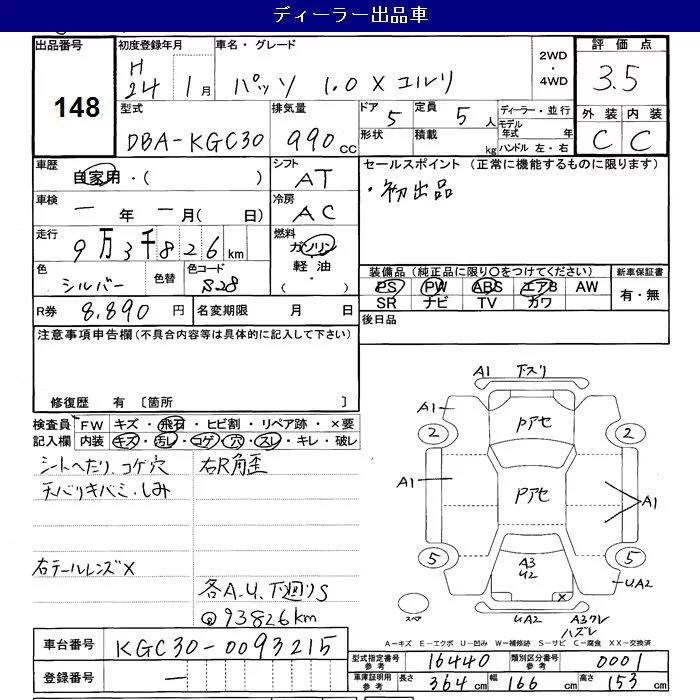 ディーラー出品車
出品番号 初度登録年月 車名・グレード 2WD・4WD 評価点
148 H24年1月 パッソ 1.0 X ユルリ 3.5
型式 排気量 ドア 5 定員 5人 ディーラー・並行 外装 内装
DBA-KGC30 990cc 形状 積載 kg モデル年式 年 C C
ハンドル 左・右
車歴 自家用・( ) シフト AT セールスポイント (正常に機能するものに限ります)
車検 ー年ー月( 日) 冷房 AC ・初出品
走行 9万3千826km 燃料 ガソリン・軽油・
色 シルバー 色替 色コード S28 装備品 (純正品に限り○をつけてください) 新車保証書
PS PW ABS エアB AW 有・無
SR ナビ TV カワ
R券 8,890円 名変期限 月 日 後日品
注意事項申告欄(不具合内容等は具体的に記入して下さい)
修復歴 有 〔箇所 〕
検査員 FW キズ・飛石・ヒビ割・リペア跡・×要
記入欄 内装 キズ・汚レ・コゲ・穴・スレ・キレ・破レ
シートヘたり、コゲ穴 右R角歪
天バリキバミ・しみ
右テールレンズX
各A.U、下廻りS
@93826km
A1 下スリ
A1 Pアセ
2 2
A1 Pアセ A1
5 A3 U2 5
X UA2
スペア UA2 A3ワレ
ハズレ
A-キズ E-エクボ U-凹み W-補修跡 S-サビ C-腐食 XX-交換済
車台番号 KGC30-0093215
型式指定番号 参考 16440 類別区分番号 参考 0001
登録番号 ー 車庫証明用 参考 長さ 364cm 幅 166cm 高さ 153cm